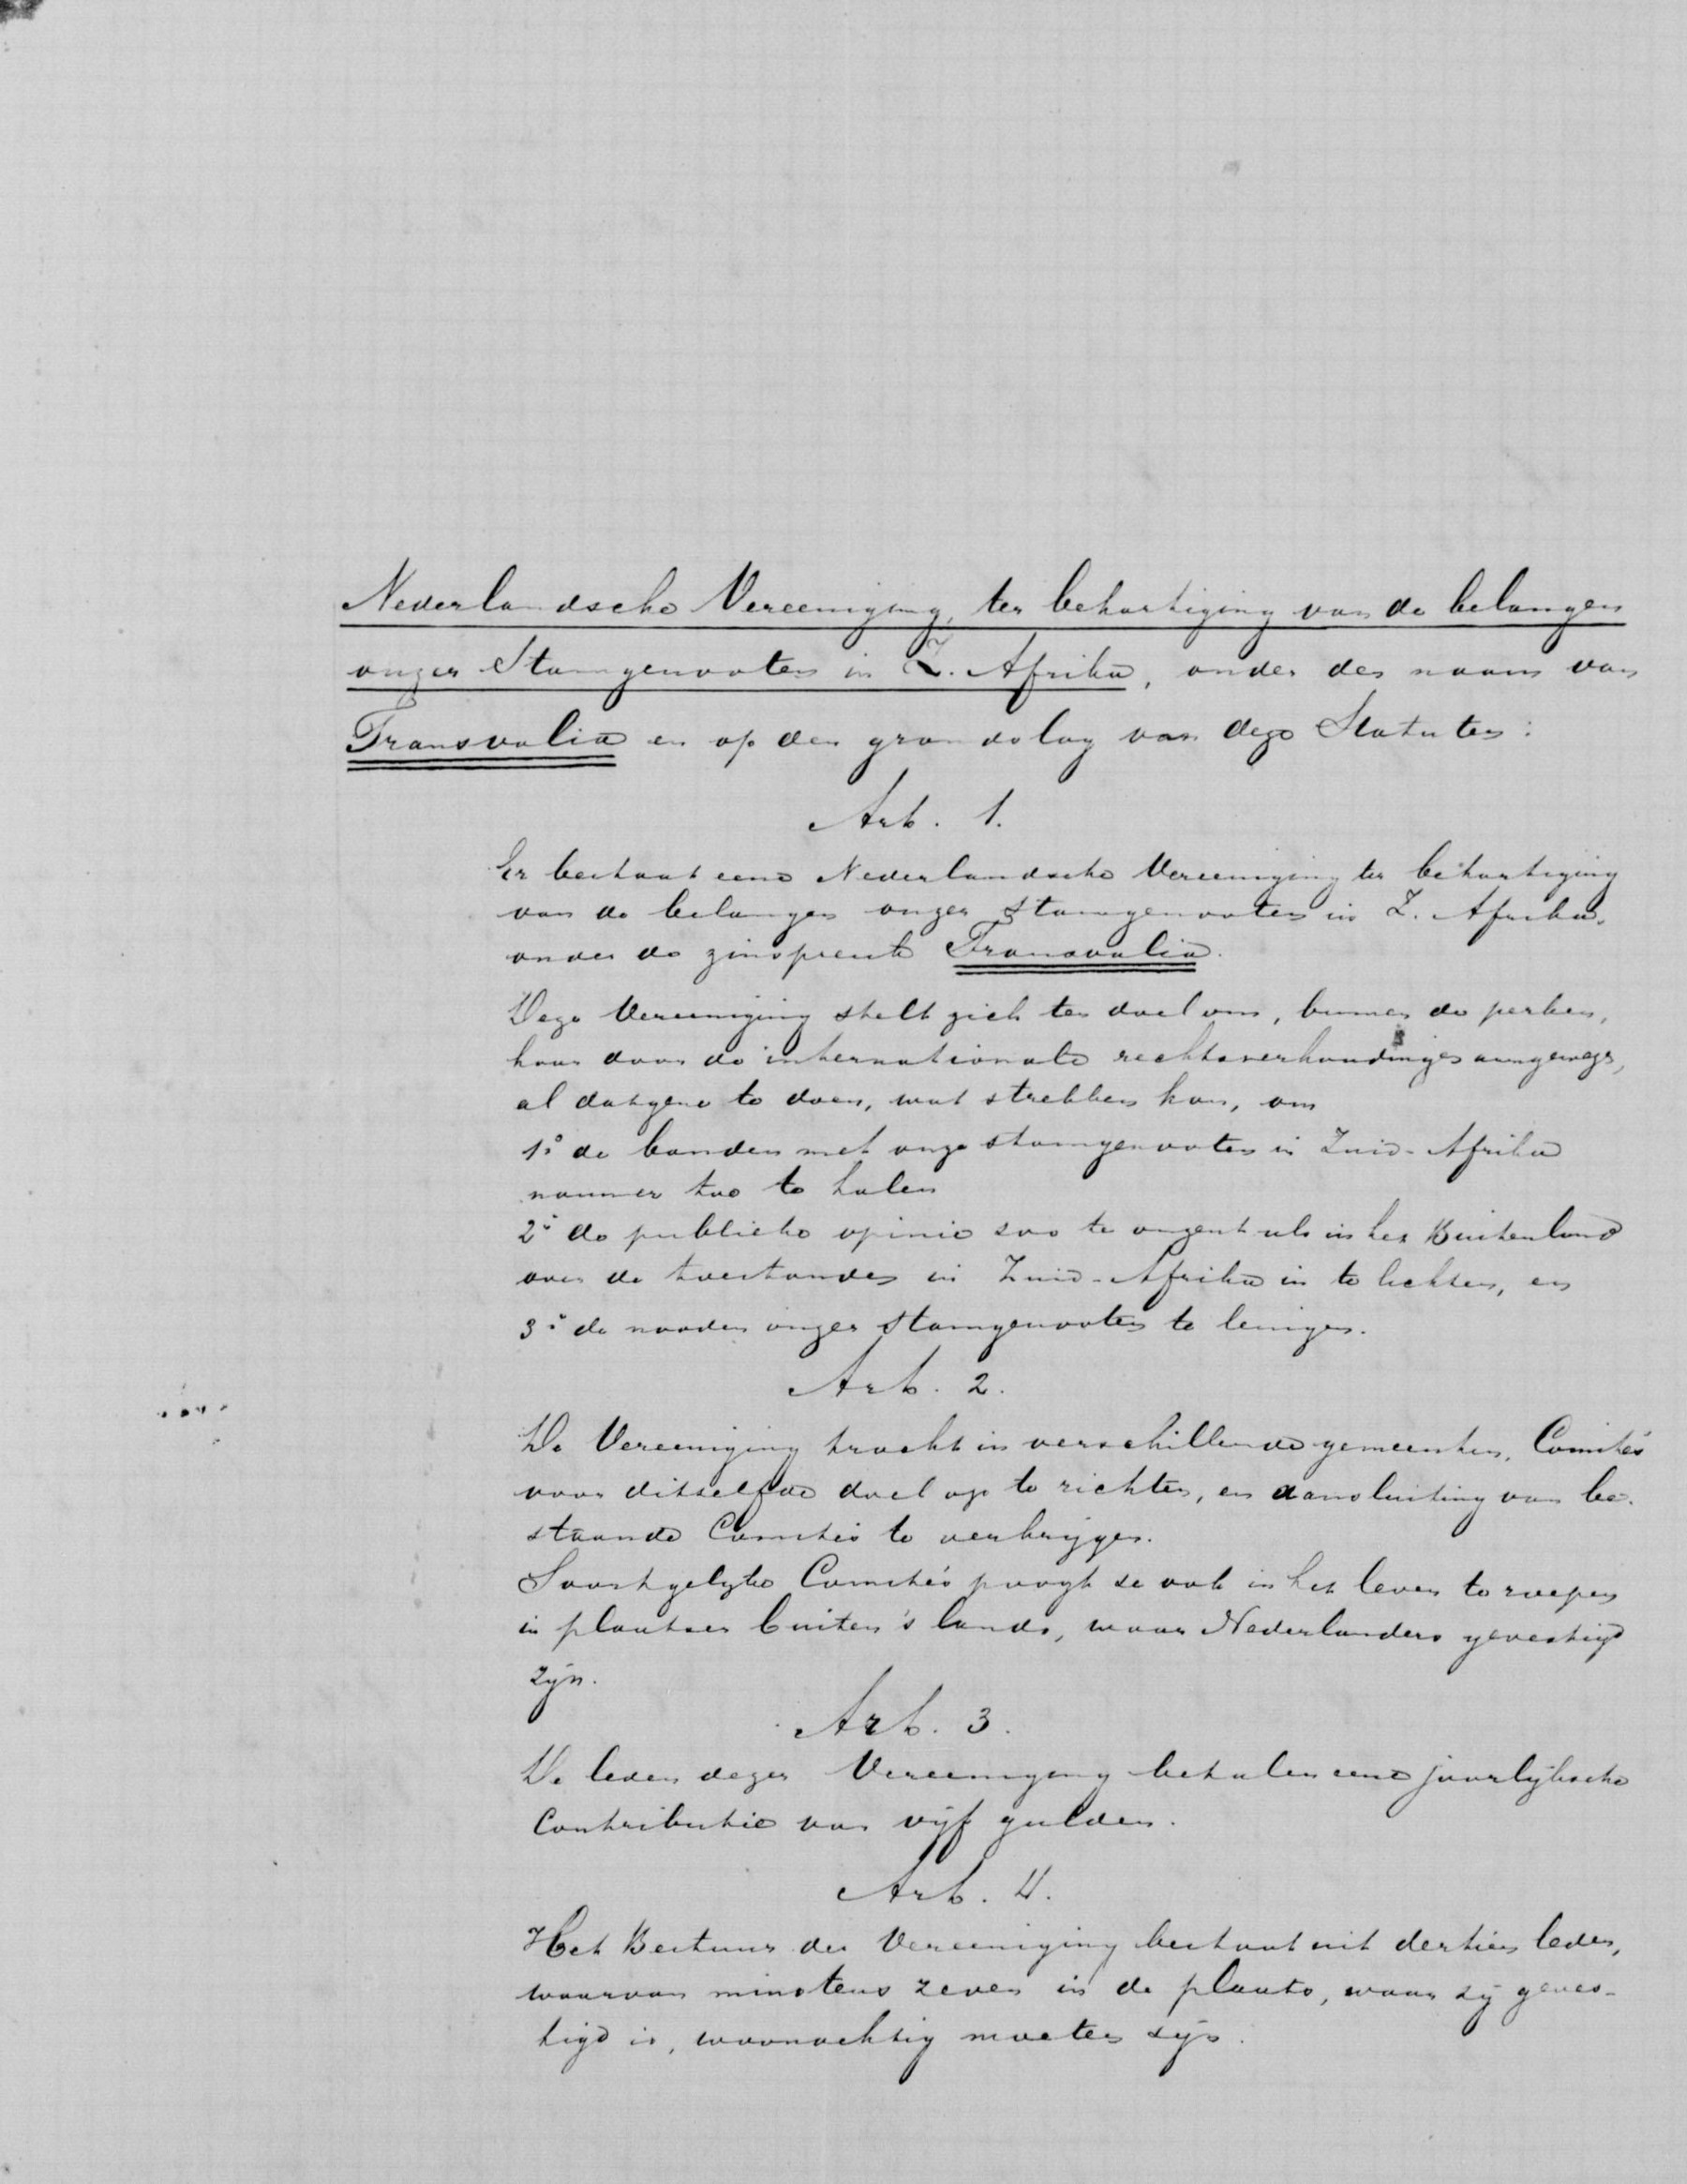 Nederlandsche Vereeniging, ter behartiging van de belangen
onzer Stamgenooten in Z. Afrika, onder den naam van
Transvalia en op den grondslag van deze Statuten:
Art. 1.
Er bestaat eene Nederlandsche Vereeniging ter behartiging
van de belangen onzer Stamgenooten in Z. Afrika,
onder de zinspreuk Transvalia.
Deze Vereeniging stelt zich ten doel om, binnen de perken,
haar door de internationale rechtsverhoudingen aangewezen,
al datgene te doen, wat strekken kan, om
1° de banden met onze stamgenooten in Zuid-Afrika
nauwer toe te halen
2° de publieke opinie zoo te onzent als in het Buitenland
over de toestanden in Zuid-Afrika in te lichten, en
3° de nooden onzer stamgenooten te lenigen.
Art. 2.
De Vereeniging tracht in verschillende gemeenten, Comités
voor ditzelfde doel op te richten, en aansluiting van be-
staande Comités te verkrijgen.
Soortgelijke Comités poogt ze ook in het leven te roepen
in plaatsen buiten 's lands, waar Nederlanders gevestigd
zijn.
Art. 3.
De leden dezer Vereeniging betalen eene jaarlijksche
Contributie van vijf gulden.
Art. 4.
Het Bestuur der Vereeniging bestaat uit dertien leden,
waarvan minstens zeven in de plaats, waar zij geves-
tigd is, woonachtig moeten zijn.